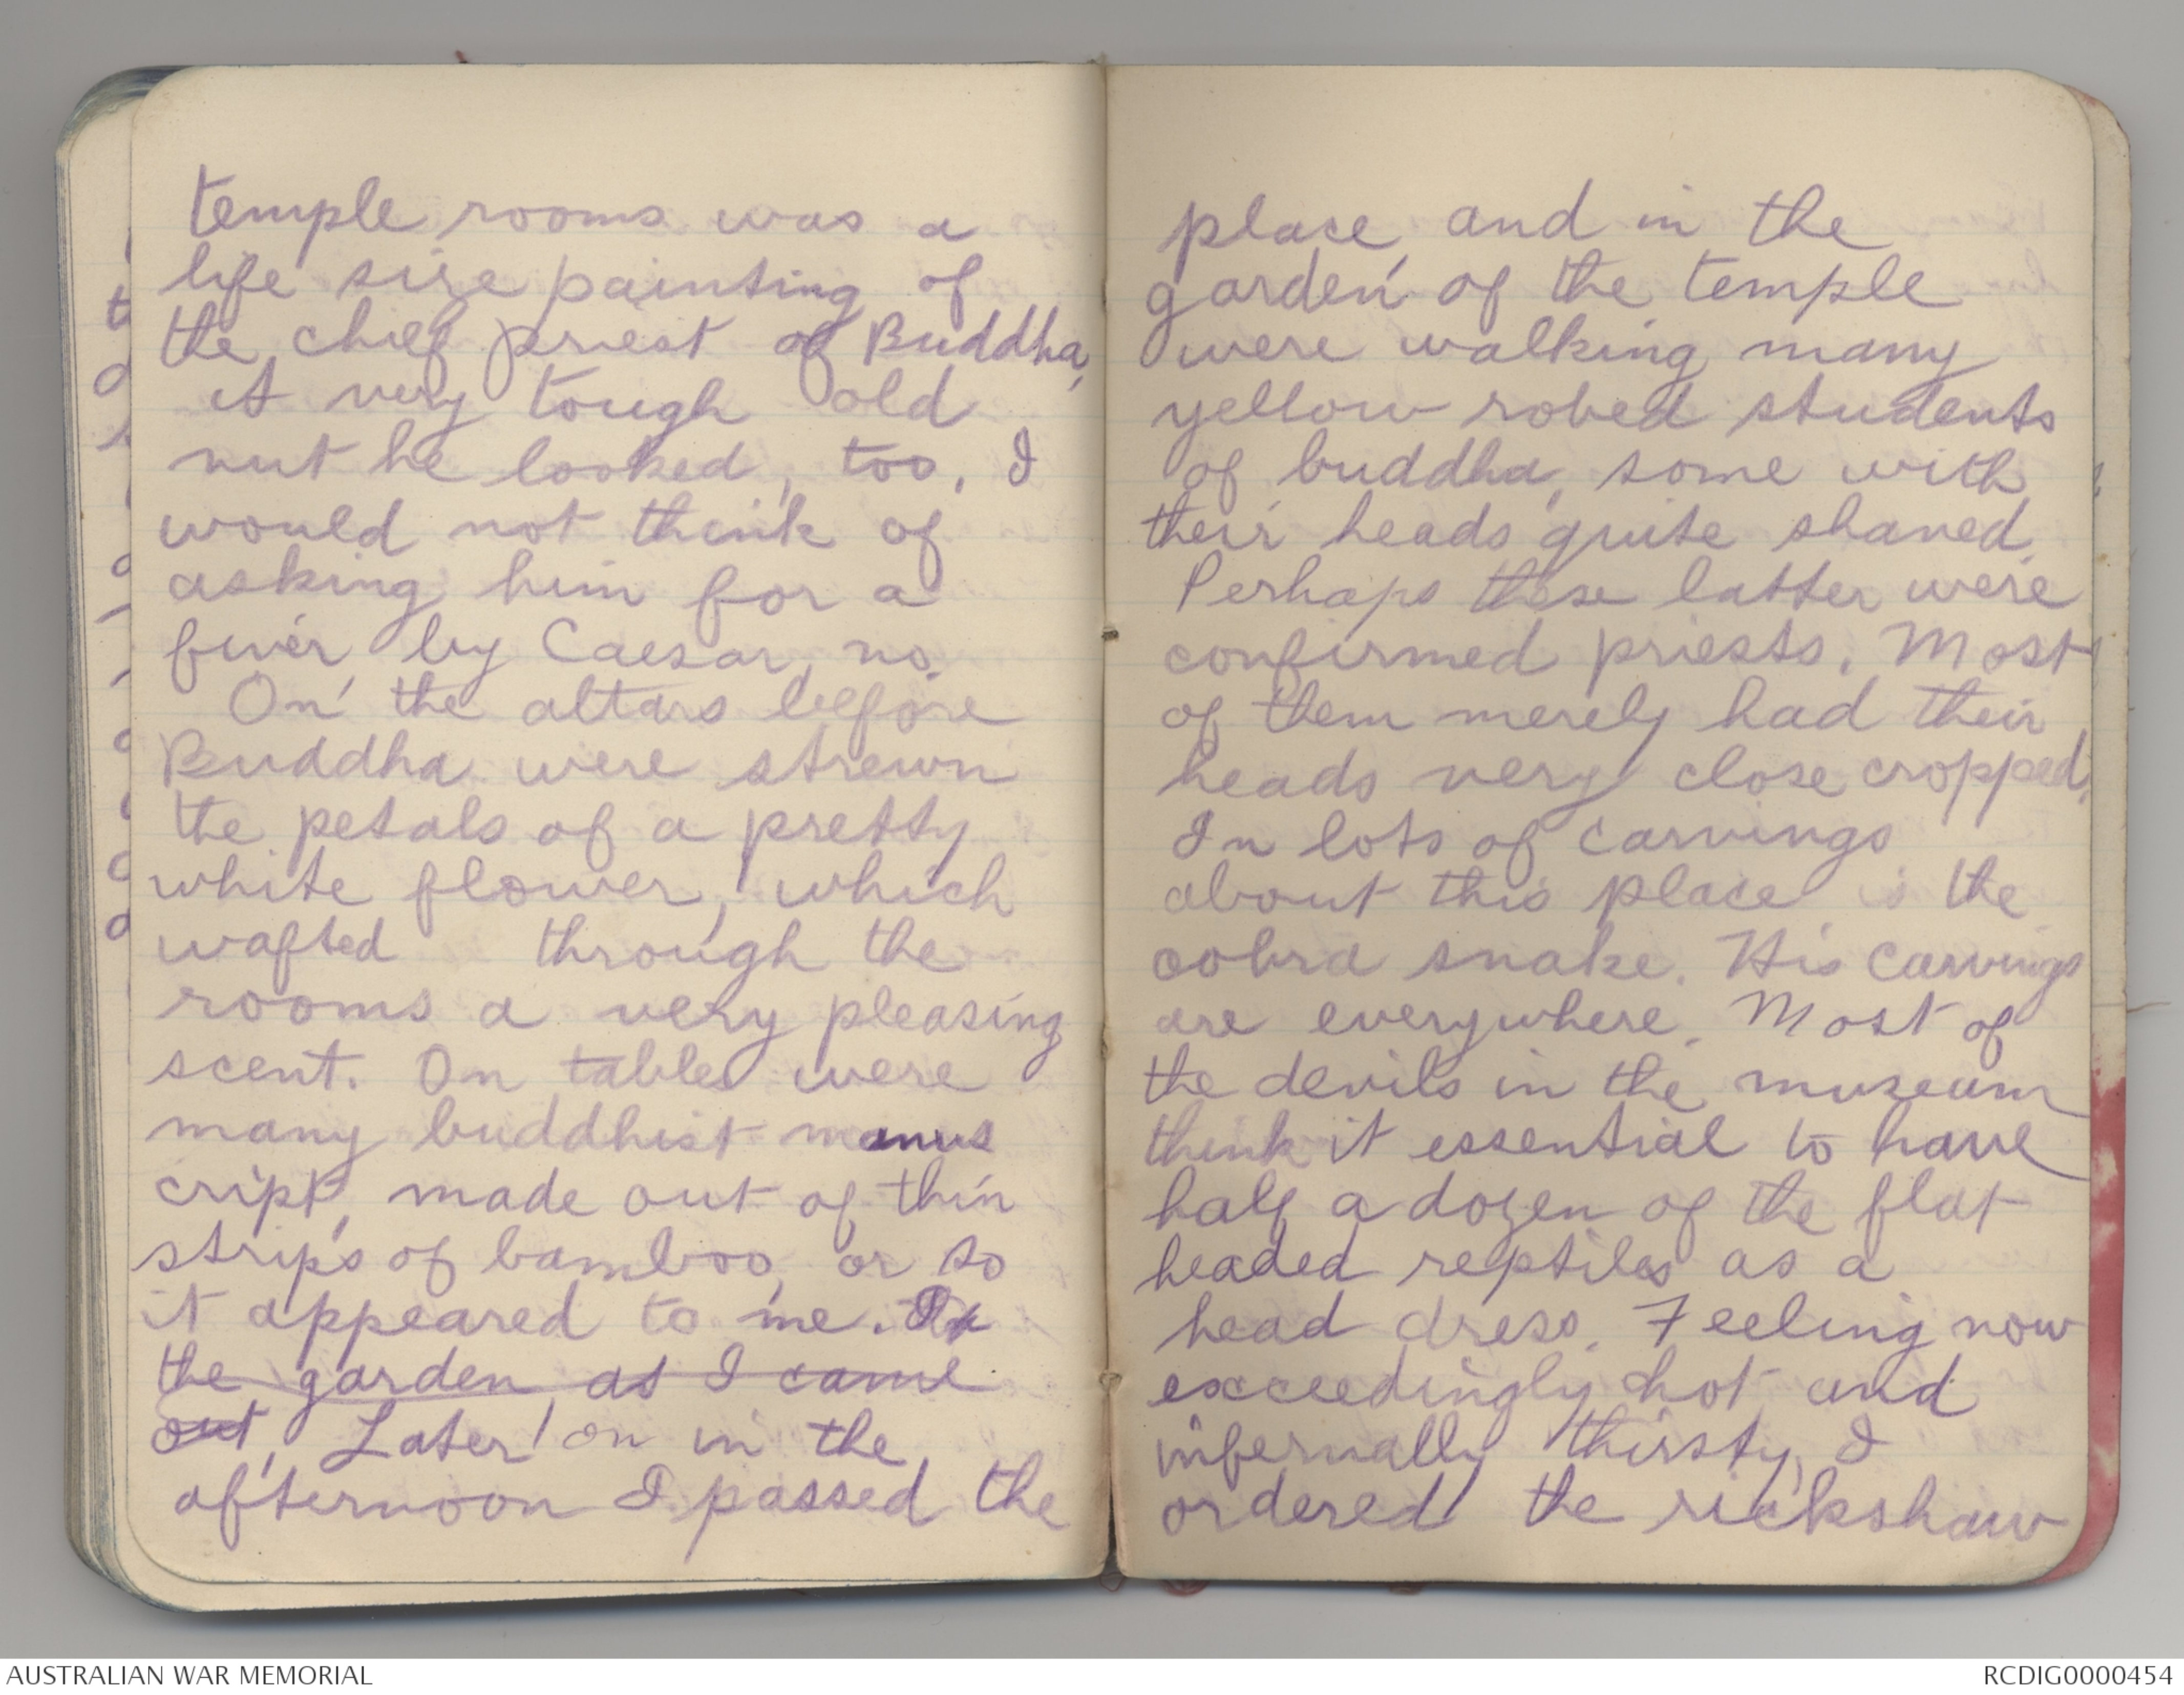 temple rooms was a
life size painting of
the chief priest of Buddha,
A very tough old
nut he looked, too. I
would not think of
asking him for a
fiver, by Caesar, no.
On the altars before
Buddha were strewn
the petals of a pretty
white flower, which
wafted through the
rooms a very pleasing
scent. On tables were
many buddhist manus
cript, made out of thin
strips of bamboo, or so
it appeared to me. In
the garden, as I came
out, Later on in the
afternoon I passed the
place, and in the
garden of the temple
were walking many
yellow robed students
of buddha, some with
their heads quite shaved.
Perhaps these latter were
confirmed priests. Most
of them merely had their
heads very close cropped.
In lots of carvings
about this place is the
cobra snake. His carvings
are everywhere. Most of
the devils in the museum
think it essential to have
half a dozen of the flat
headed reptiles as a
head dress. Feeling now
exceedingly hot and
infernally thirsty, I
ordered the rickshaw
AUSTRALIAN WAR MEMORIAL
RCDIG0000454